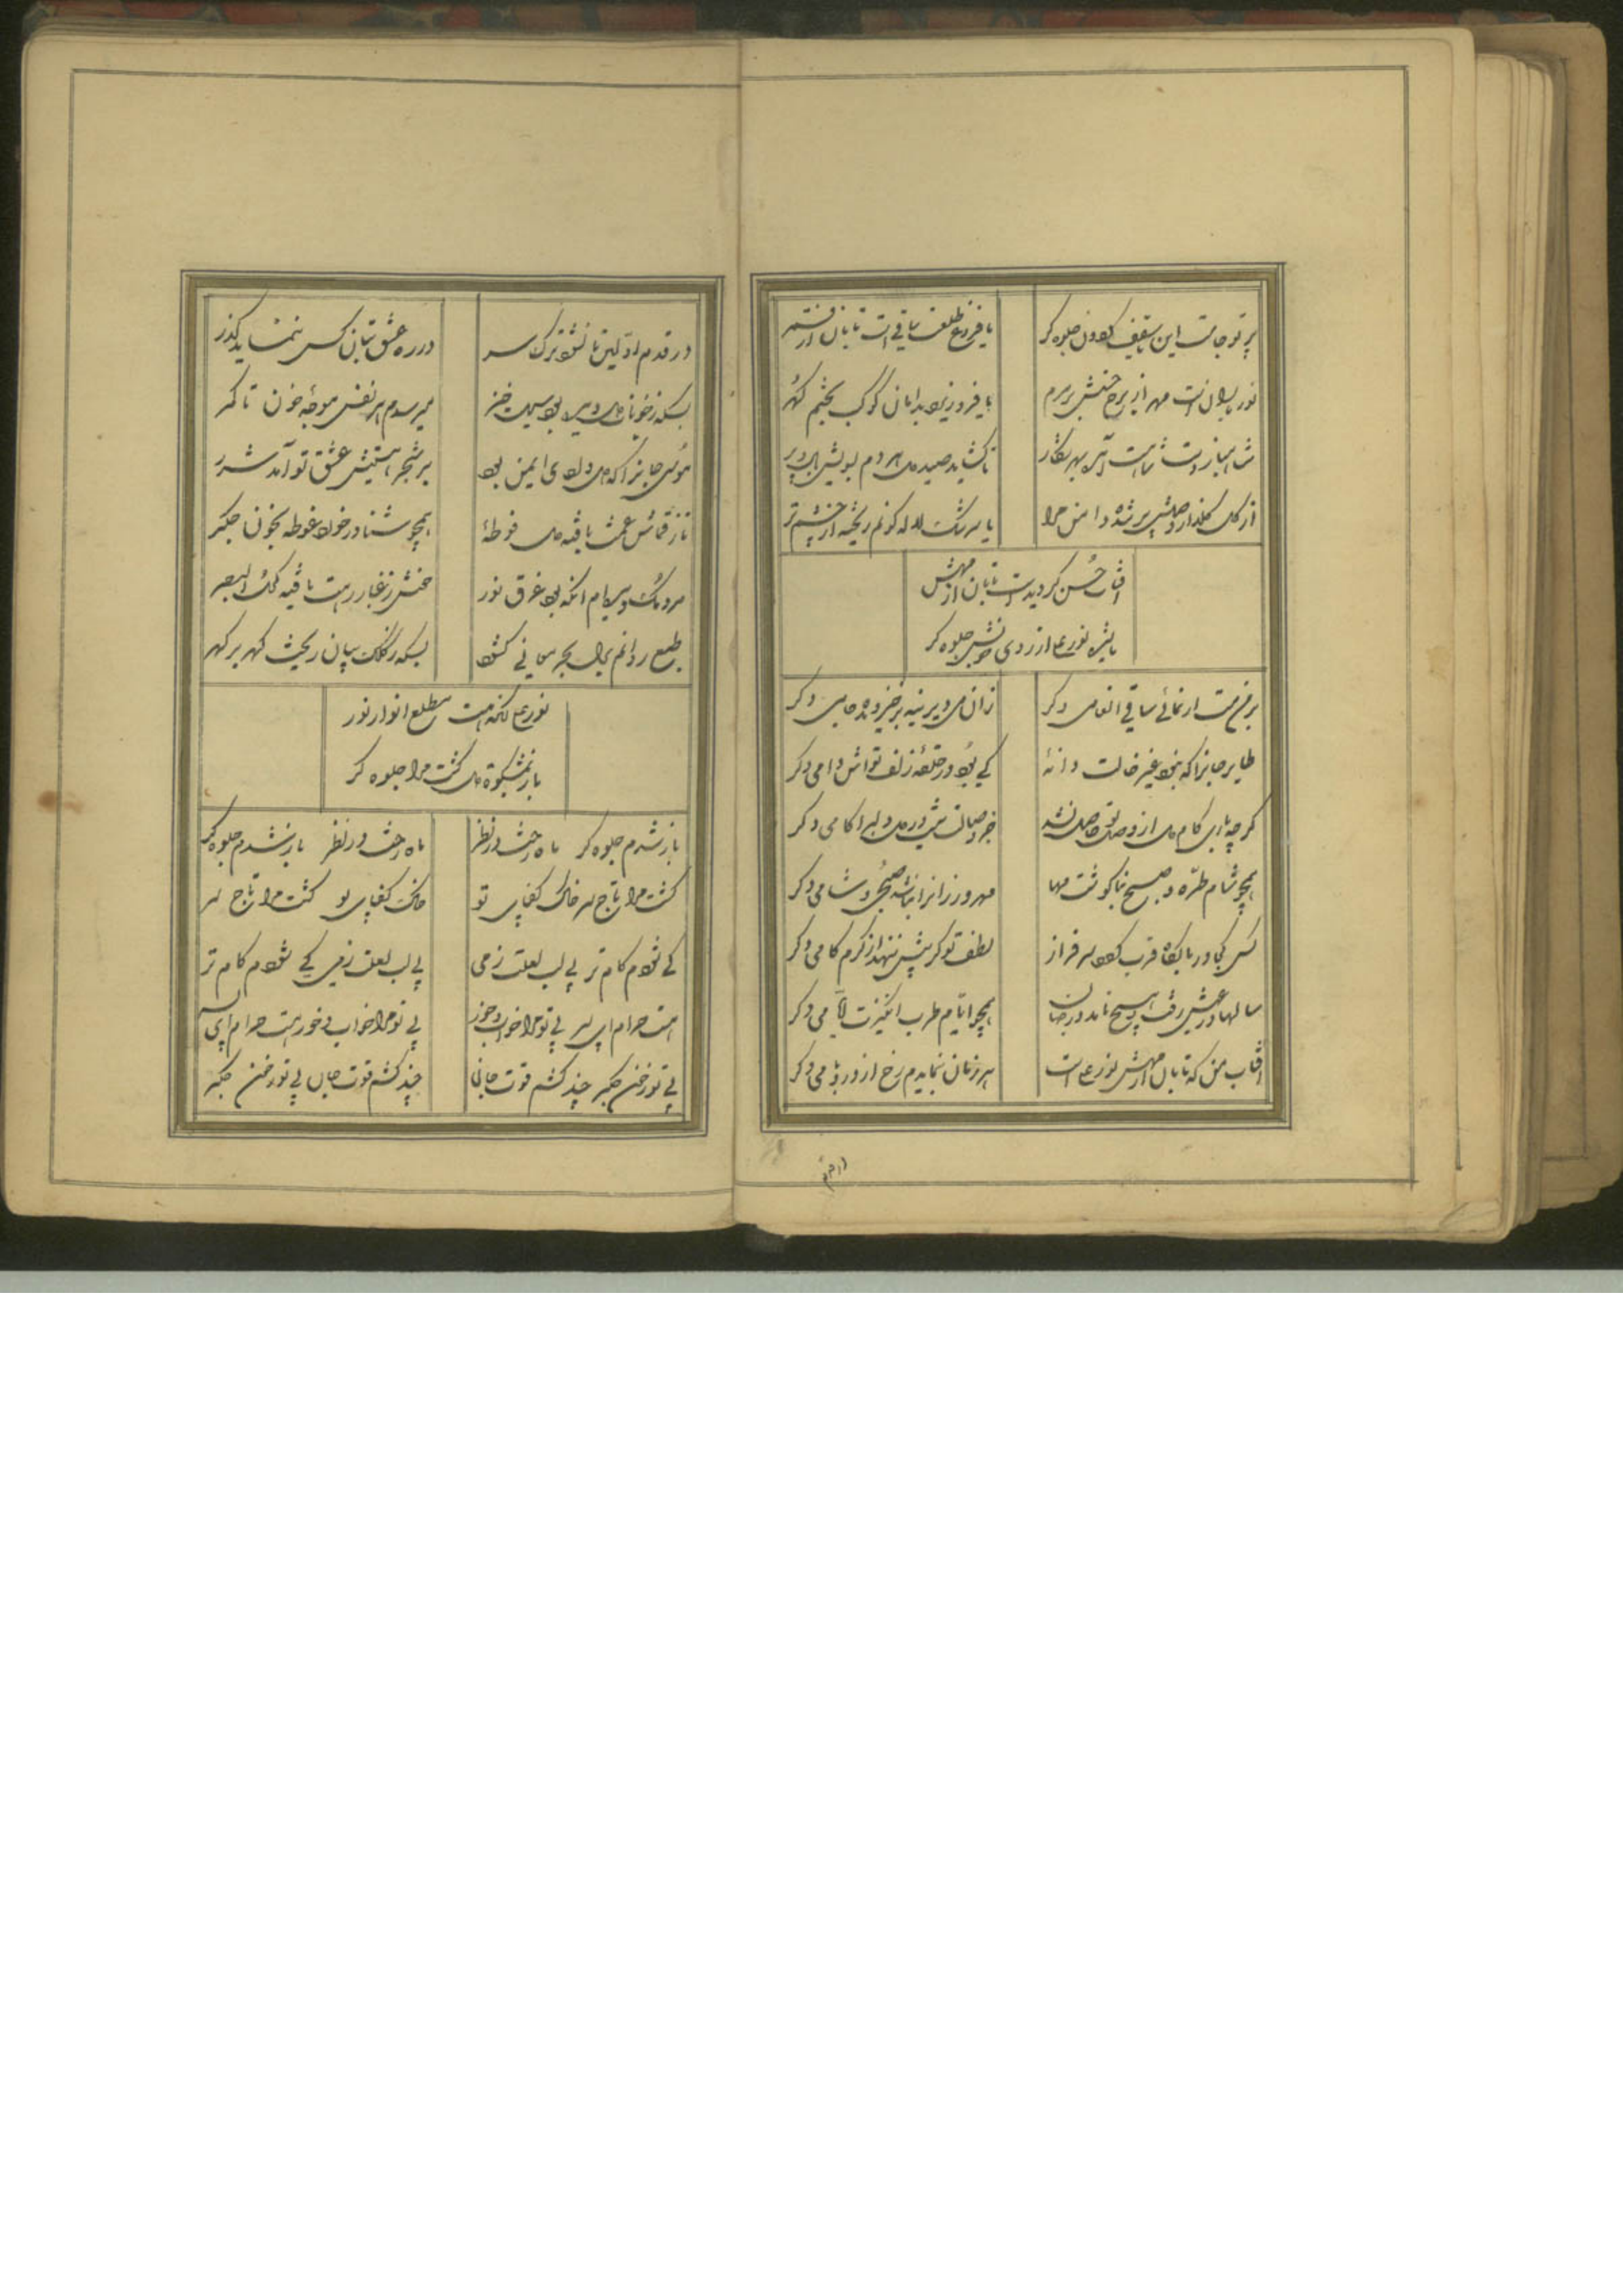 پرتو جامست این ساقیا کرده جلوه گر
یا فروغ طلعت ساقی است تابان از قمر
نور باران است مهر از برج
یا فرو ریزد بدامان کوکب بختم گهر
تا گشاید صید دل هر دم بسویش بال و پر
از گل گلذار وصلش پر شده دامن مرا
یا سرشک لاله گونم ریخته از چشم تر
آفتاب حسن گردیده است تابان از مهش
یا شه نورعلی از روی خوبش جلوه گر
بر من مست ار نمائی ساقی انعامی دگر
زان می دیرینه برخیز و بده جامی دگر
طایر جانرا که نبود غیر خالت دانهٔ
کی بود در حلقه زلف تواش دامی دگر
گرچه یارب کام دل از وصل تو حاصل نشد
جز وصالت نیست در دل دلبرا کامی دگر
همچو شام طره و صبح بناگوشت مها
مهرورزانرا نباشد صبحی و شامی دگر
کس کجا در بارگاه قرب گردد سرفراز
لطف تو گر پیش ننهد از کرم گامی دگر
سالها در عیش رفت و هیچ نامد در جهان
همچو ایام طرب انگیزت ایامی دگر
آفتاب من که تابان از مهش نورعلی است
هر زمان بنمایدم رخ از در و بامی دگر
در ره عشق بتان کس ننماید گذر
در قدم اولین تا نشود ترک سر
بسکه ز خوناب دل دیده بود سیل خیز
میرسدم هر نفس موجه خون تا کمر
موسی جانرا که دل وادی ایمن بود
بر شجر هستیش عشق تو آمد شرر
تا ز قماش غمت یافته دل فوطهٔ
همچو شناور خورد غوطه بخون جگر
مردمک دیده‌ام آنکه بود غرق نور
چشمش ز غبار رهت یافته کحل البصر
طبع روانم بدل بحر معانی گشود
بسکه ز کلک بیان ریخت گهر بر گهر
نورعلی نکته‌ات مطلع انوار نور
باز ز مشکوة دل گشت مرا جلوه گر
باز شدم جلوه گر ماه رخت در نظر
ماه رخت در نظر باز شدم جلوه گر
گشت مرا تاج سر خاک کف پای تو
خاک کف پای تو گشت مرا تاج سر
کی شودم کام تر بی لب لعلت ز می
بی لب لعلت ز می کی شودم کام تر
هست حرام ای پسر بی تو مرا خواب و خور
بی تو مرا خواب و خور هست حرام ای پسر
بی تو ز خون جگر چند کشم قوت جان
چند کشم قوت جان بی تو ز خون جگر